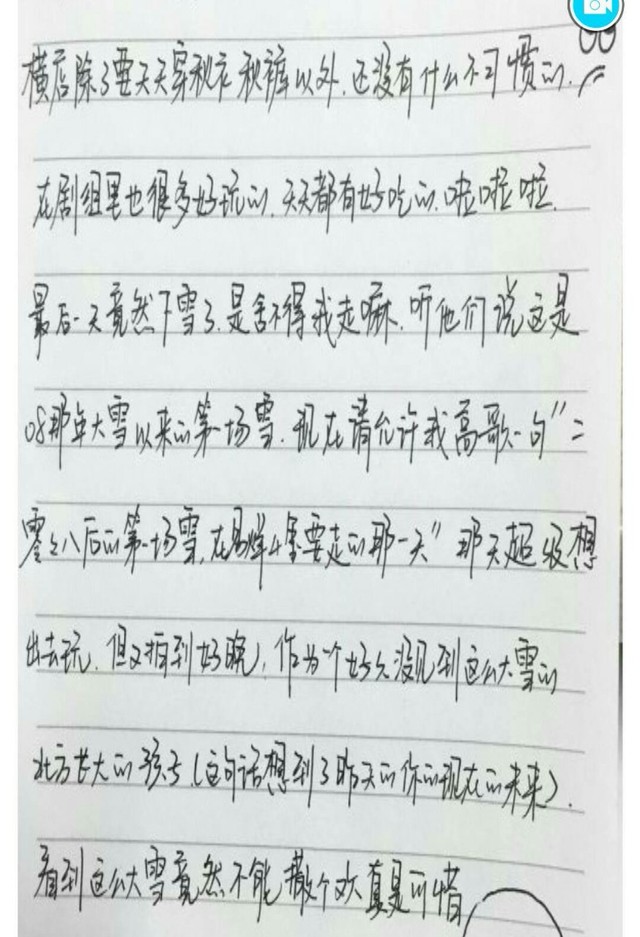 横店除了要天天穿秋衣秋裤以外.还没有什么不习惯的.
在剧组里也很多好玩的.天天都有好吃的.啦啦啦.
最后一天竟然下雪了.是舍不得我走嘛.听他们说这是
08那年大雪以来的第一场雪.现在请允许我高歌一句"二
零零八后的第一场雪,在易烊千玺要走的那一天"那天超级想
出去玩.但又拍到好晚,作为一个好久没见到这么大雪的
北方长大的孩子(这句话想到了昨天的你的现在的未来).
看到这么大雪竟然不能撒个欢真是可惜